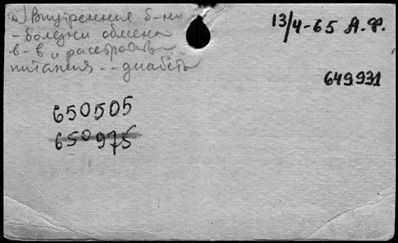 а) Внутренние б-ни
- болезни обмена
в-в и расстройства
питания -- диабеты
13/4-65 А.Ф.
649931
650505
650975